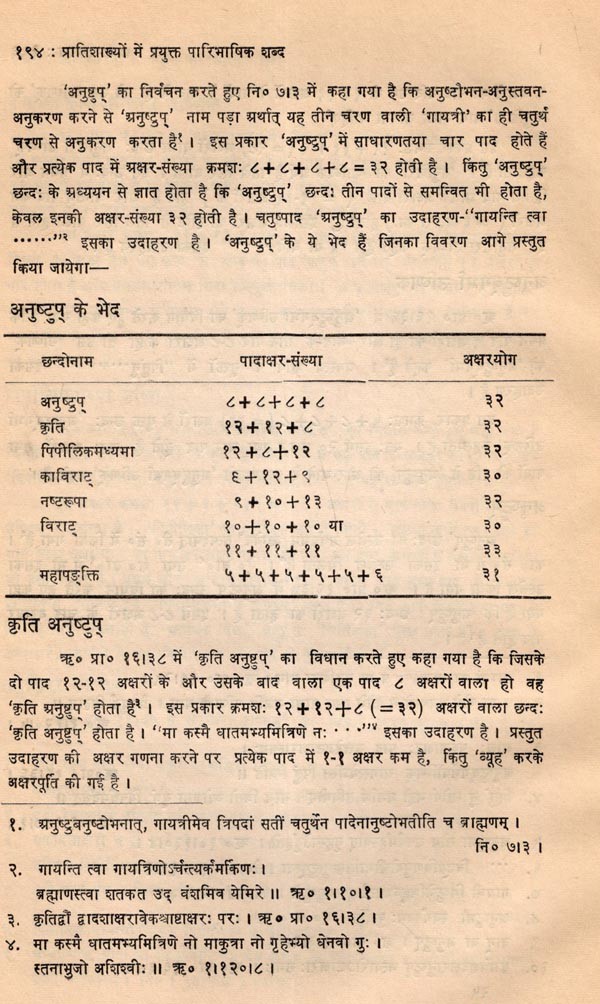 १९४ : प्रातिशाख्यों में प्रयुक्त पारिभाषिक शब्द
'अनुष्टुप्' का निर्वचन करते हुए नि० ७।३ में कहा गया है कि अनुष्टोभन-अनुस्तवन-
अनुकरण करने से 'अनुष्टुप्' नाम पड़ा अर्थात् यह तीन चरण वाली 'गायत्री' का ही चतुर्थ
चरण से अनुकरण करता है¹। इस प्रकार 'अनुष्टुप्' में साधारणतया चार पाद होते हैं
और प्रत्येक पाद में अक्षर-संख्या क्रमशः ८+८+८+८=३२ होती है। किंतु 'अनुष्टुप्'
छन्दः के अध्ययन से ज्ञात होता है कि 'अनुष्टुप्' छन्दः तीन पादों से समन्वित भी होता है,
केवल इनकी अक्षर-संख्या ३२ होती है। चतुष्पाद 'अनुष्टुप्' का उदाहरण-"गायन्ति त्वा
······"² इसका उदाहरण है। 'अनुष्टुप्' के ये भेद हैं जिनका विवरण आगे प्रस्तुत
किया जायेगा—
अनुष्टुप् के भेद
छन्दोनाम पादाक्षर-संख्या अक्षरयोग
अनुष्टुप् ८+८+८+८ ३२
कृति १२+१२+८ ३२
पिपीलिकमध्यमा १२+८+१२ ३२
काविराट् ९+१२+९ ३०
नष्टरूपा ९+१०+१३ ३२
विराट् १०+१०+१० या ३०
११+११+११ ३३
महापङ्क्ति ५+५+५+५+५+६ ३१
कृति अनुष्टुप्
ऋ० प्रा० १६।३८ में 'कृति अनुष्टुप्' का विधान करते हुए कहा गया है कि जिसके
दो पाद १२-१२ अक्षरों के और उसके बाद वाला एक पाद ८ अक्षरों वाला हो वह
'कृति अनुष्टुप्' होता है³। इस प्रकार क्रमशः १२+१२+८ (=३२) अक्षरों वाला छन्दः
'कृति अनुष्टुप्' होता है। "मा कस्मै धातमभ्यमित्रिणे नः ···"⁴ इसका उदाहरण है। प्रस्तुत
उदाहरण की अक्षर गणना करने पर प्रत्येक पाद में १-१ अक्षर कम है, किंतु 'व्यूह' करके
अक्षरपूर्ति की गई है।
१. अनुष्टुबनुष्टोभनात्, गायत्रीमेव त्रिपदां सतीं चतुर्थेन पादेनानुष्टोभतीति च ब्राह्मणम्।
नि० ७।३।
२. गायन्ति त्वा गायत्रिणोऽर्चन्त्यर्कमर्किणः।
ब्रह्माणस्त्वा शतकत उद् वंशमिव येमिरे॥ ऋ० १।१०।१।
३. कृतिर्द्वौ द्वादशाक्षरावेकश्चाष्टाक्षरः परः। ऋ० प्रा० १६।३८।
४. मा कस्मै धातमभ्यमित्रिणे नो माकुत्रा नो गृहेभ्यो धेनवो गुः।
स्तनाभुजो अशिश्वीः॥ ऋ० १।१२०।८।